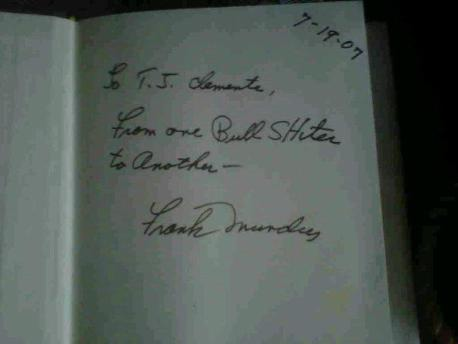 7-19-07
To T.J. Clemente,
From one Bull SHiter
to Another —
Frank Mundus